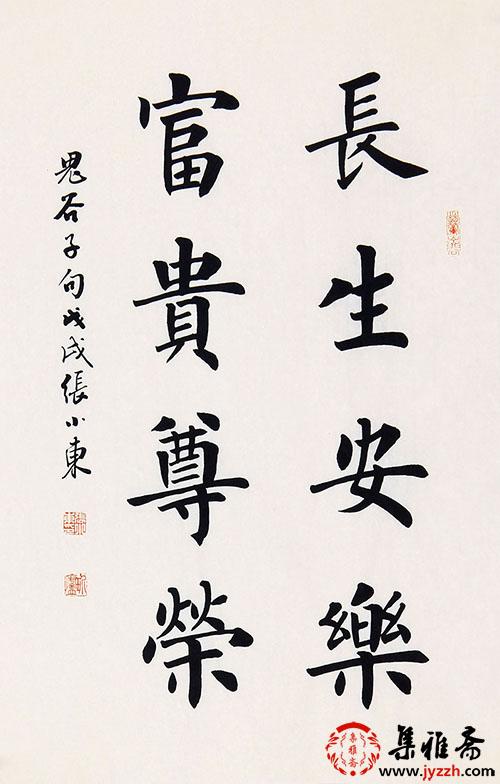 長生安樂
富貴尊榮
鬼谷子句戊戌張小東
集雅斋
www.jyzzh.com